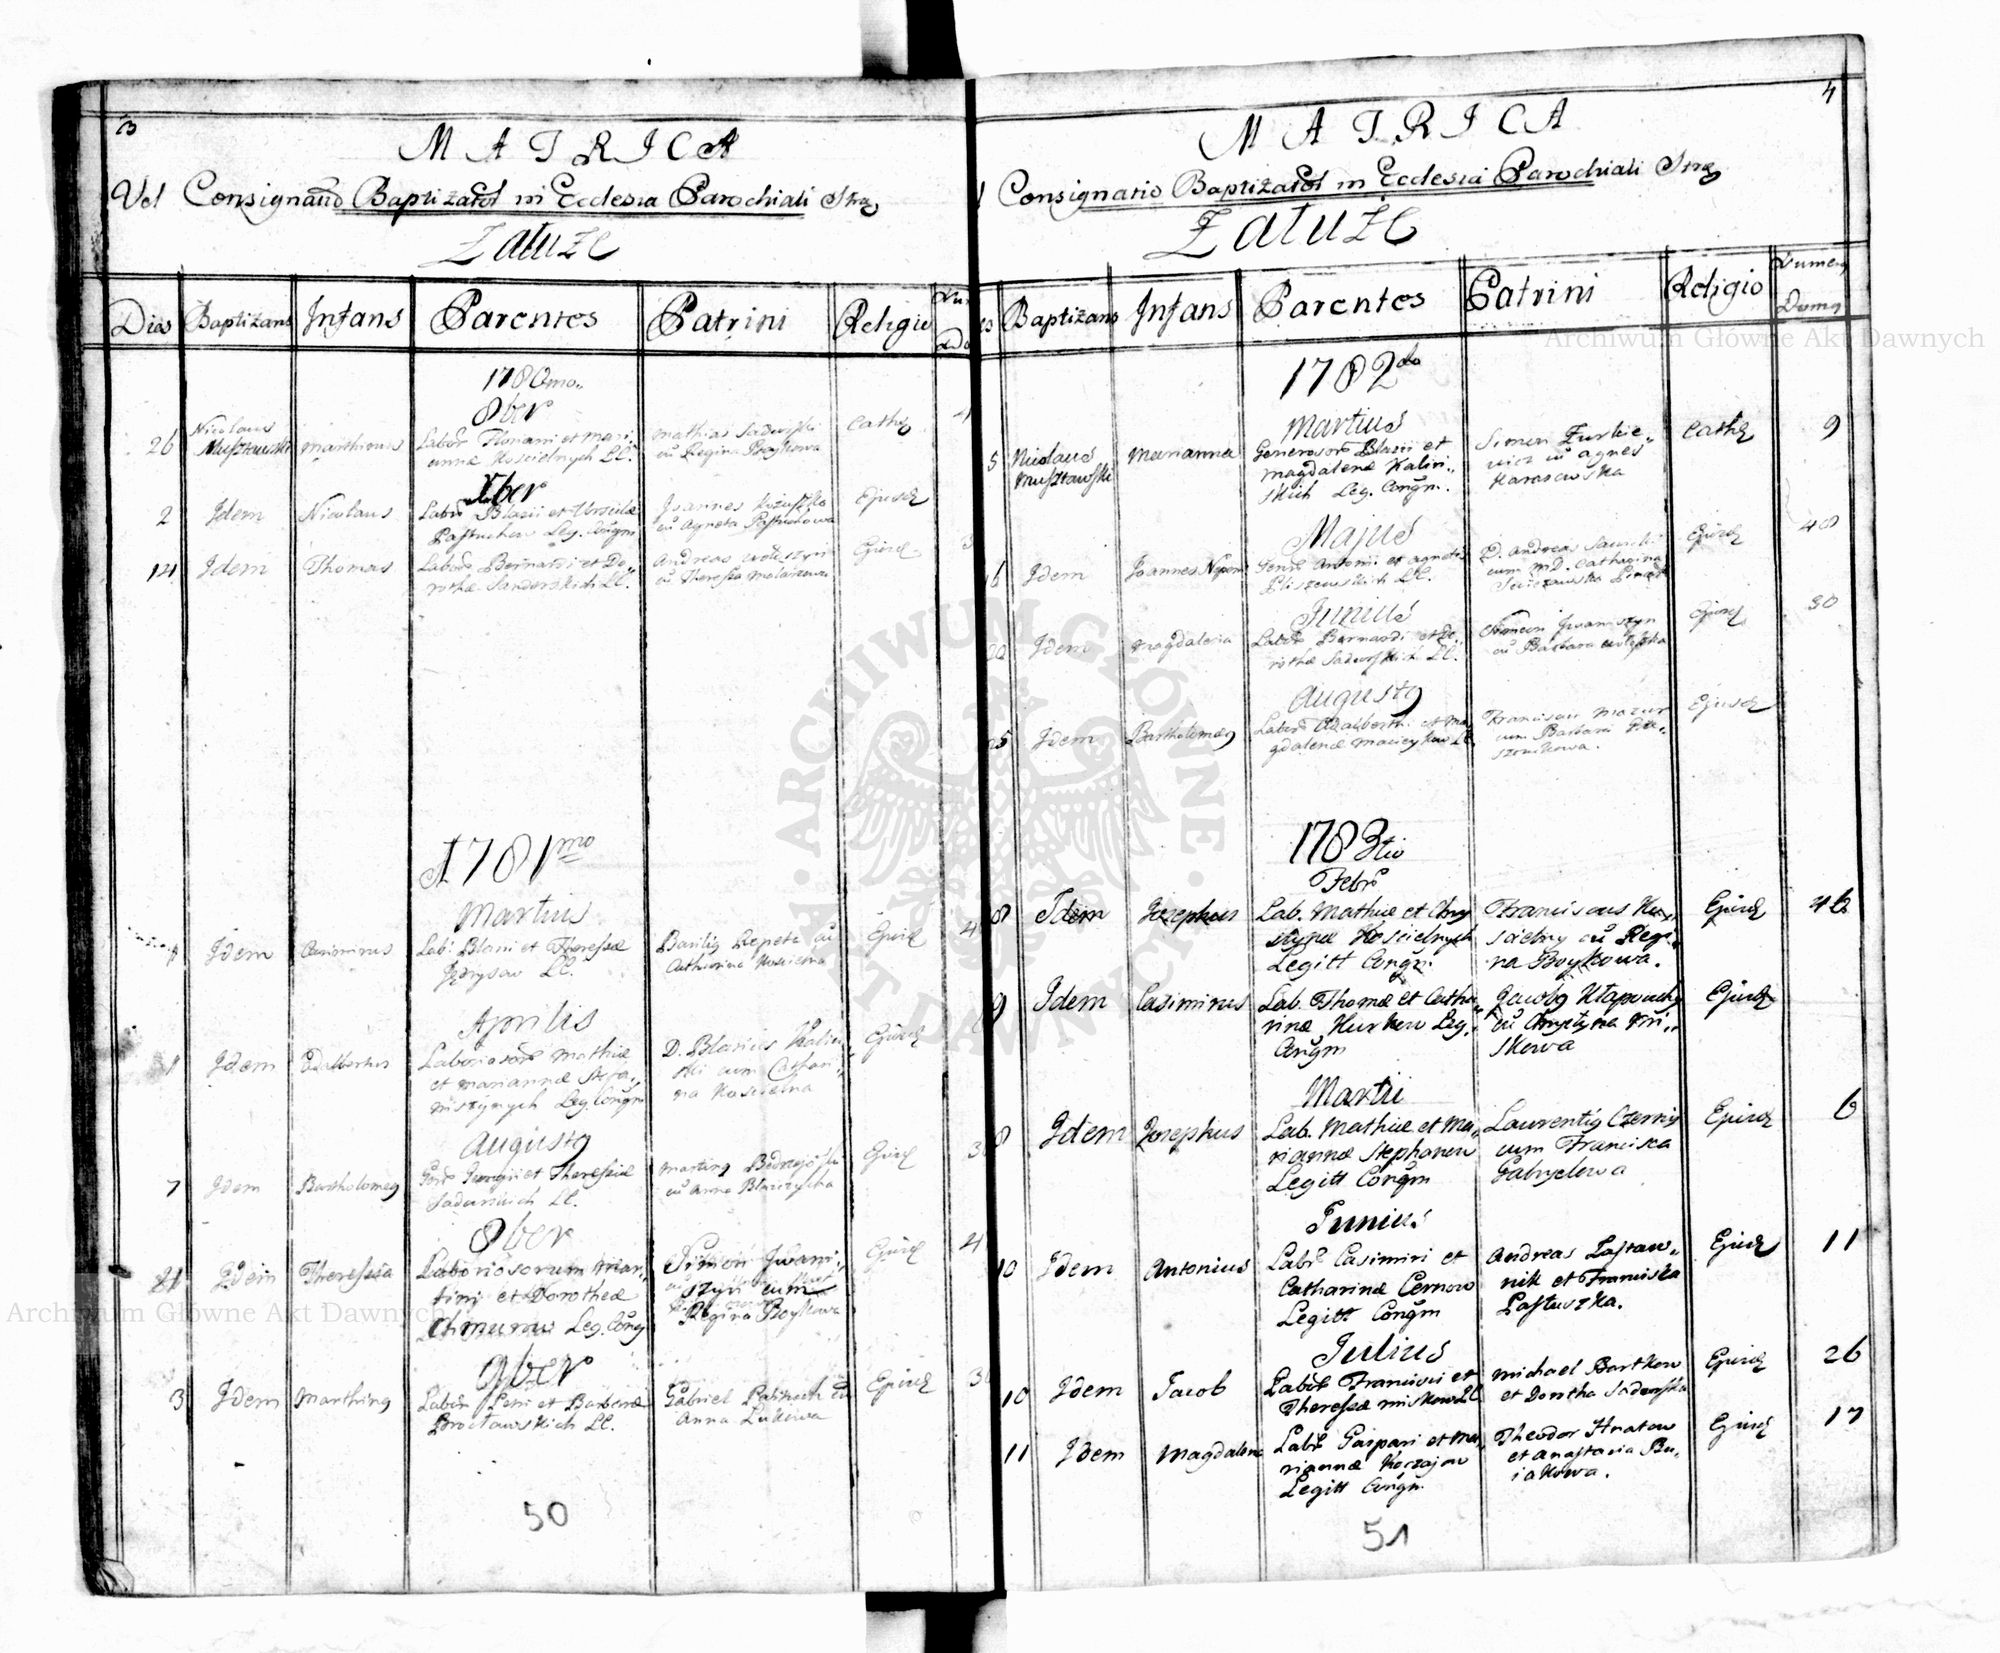 3
MATRICA
Vel Consignatio Baptizatorum in Ecclesia Parochiali
Załuże
Dies Baptizans Infans Parentes Patrini Religio
1780mo
8ber
26 Nicolaus Musztawski Marthinus Labor Floriani et Mari-
annæ Koscielnych LC.
Mathias Sadowski
cu Regina Boykowa
Cathol 4
Xber
2 Idem Nicolaus Labor Blasii et Ursulæ
Pastuchow Leg. Congm
Joannes
cu Agneta Pastuchowa
Ejusd
14 Idem Thomas Labor Bernardi et Do-
rothæ Sanderskich LC.
Andreas Wołuszyn
cu Theressa
Ejusd 3
A 1781mo
Martius
Idem Casimirus Lab. Blasii et Theressæ
LC.
Basilius Repeta cu
Catharina Koscielna
Ejusd 4
Aprilis
Idem Adalbertus Laboriosor Mathiæ
et Mariannæ Stefa-
niszynych Leg. Congm
D. Blasius Kalin-
ski cum Cathari-
na Koscielna
Ejusd
Augustus
7 Idem Bartholomeus Georgii et Theressiæ
LC.
Martinus
cu Anna
Ejusd 3
8ber
21 Idem Theressia Laboriosorum Mar-
tini et Dorotheæ
Leg. Cong
Simon Iwani-
szyn cum
Regina Boykowa
Ejusd 4
9ber
3 Idem Marthinus Labor Petri et Barbaræ
Brocławskich LC.
Gabriel cu
Anna Lukowa
Ejusd 3
50
4
MATRICA
Consignatio Baptizator in Ecclesia Parochiali
Załuże
Baptizans Infans Parentes Patrini Religio Numerus Domus
1782do
Martius
5 Nicolaus Musztawski Marianna Generosor Blasii et
Magdalenæ Kalin-
skich Leg. Congm.
Simon Zurkie-
wicz cu Agnes
Karasowska
Cathol 9
Majus
16 Idem Joannes Nepom Antonii et Agnetis
Pliszewskich LC.
D. Andreas
cum M.D. Catharina
Ejusd 48
Junius
22 Idem Magdalena Labor Bernardi et Do-
rothæ Sadowskich LC.
Simon Iwaniszyn
cu Barbara
Ejusd 30
Augustus
25 Idem Bartholomeus Labor Adalberti et Ma-
gdalenæ Macieykow LC
Franciscus Mazur
cum Barbara
Ejusd
1783tio
Febr
8 Idem Josephus Lab. Mathiæ et Chry
stynæ Koscielnych
Legitt Congm.
Franciscus Ko-
scielny cu Regi-
na Boykowa.
Ejusd 46
9 Idem Casimirus Lab. Thomæ et Catha-
rinæ Kurkow Leg.
Congm
Jacobus Kłapouchy
cu Chrystyna Mi-
skowa
Ejusd
Martii
8 Idem Josephus Lab. Mathiæ et Ma-
riannæ Stephanow
Legitt Congm
Laurentius Czerniy
cum Francisca
Gabryelowa
Ejusd 6
Junius
10 Idem Antonius Labr Casimiri et
Catharinæ Cernow
Legitt Congm
Andreas Lastaw-
nik et Franciska
Pastuszka.
Ejusd 11
Julius
10 Idem Jacob Labor Francisci et
Theressæ Miskow LC
Michael Bartkow
et Dorotha Sadowska
Ejusd 26
11 Idem Magdalena Labr Gaspari et Ma-
riannæ Korzajow
Legitt Congm.
Theodor Hnatow
et Anastasia Bu-
iakowa.
Ejusd 17
51
Archiwum Główne Akt Dawnych
Archiwum Główne Akt Dawnych
ARCHIWUM GŁÓWNE AKT DAWNYCH